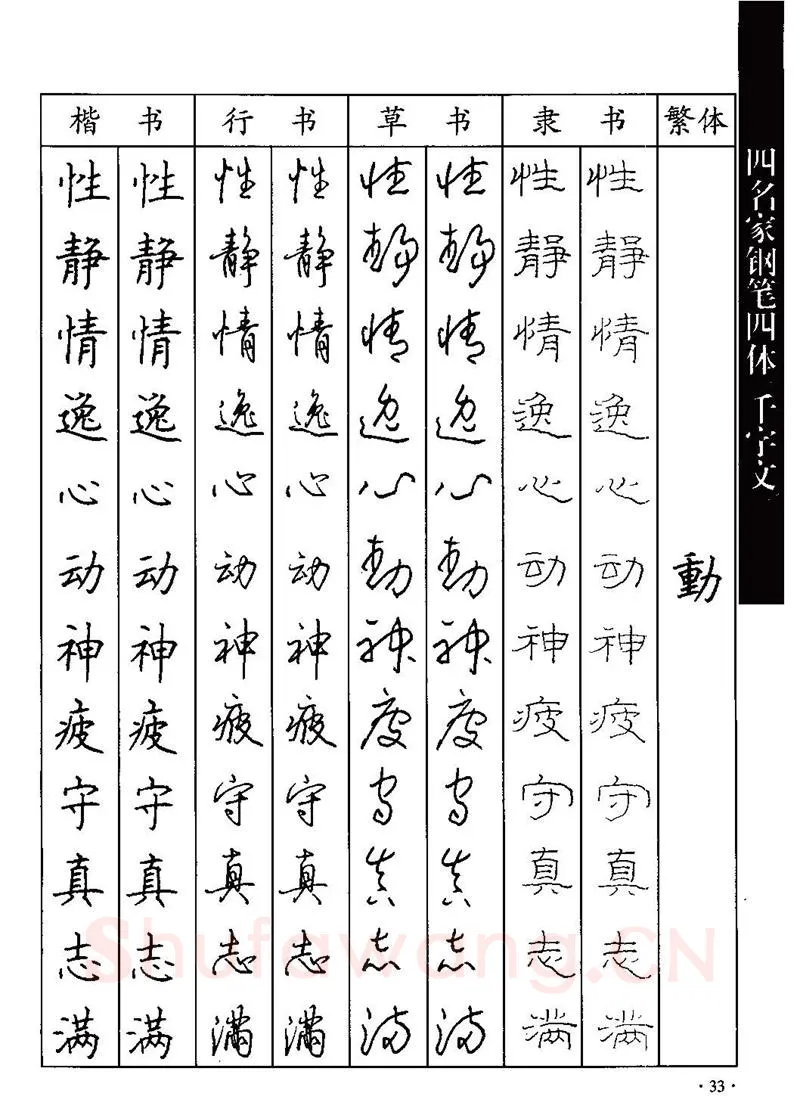 楷书 行书 草书 隶书 繁体
性 性 性 性 性 性 性 性
静 静 静 静 静 静 静 静
情 情 情 情 情 情 情 情
逸 逸 逸 逸 逸 逸 逸 逸
心 心 心 心 心 心 心 心
动 动 动 动 動 動 动 动 動
神 神 神 神 神 神 神 神
疲 疲 疲 疲 疲 疲 疲 疲
守 守 守 守 守 守 守 守
真 真 真 真 真 真 真 真
志 志 志 志 志 志 志 志
满 满 满 满 满 满 满 满
四名家钢笔四体千字文
Shufawang.CN
·33·